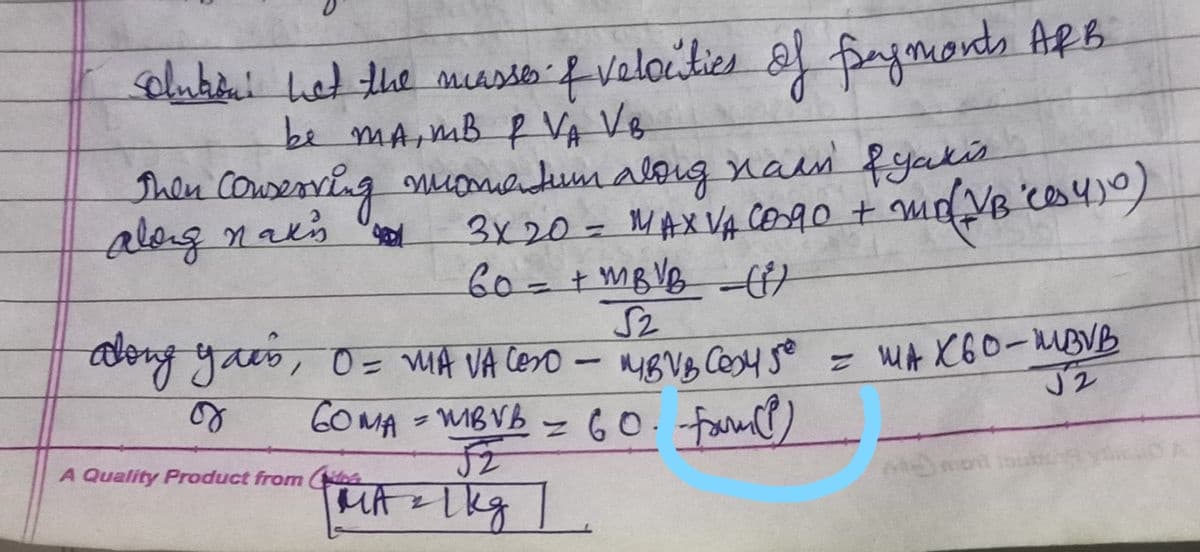 Solution: Let the masses & velocities of fragments A & B
be mA, mB & VA VB
Then Conserving momentum along x axis & y axis
along x axis 3 x 20 = MA X VA Cos90 + (VB cos45°)
60 = + mBVB/√2 —(i)
along y axis, 0 = mA VA Cos0 − MBVB Cos45° = MA X60 − MBVB/√2
or 60MA = MBVB/√2 = 60 - from(i)
A Quality Product from
MA = 1kg